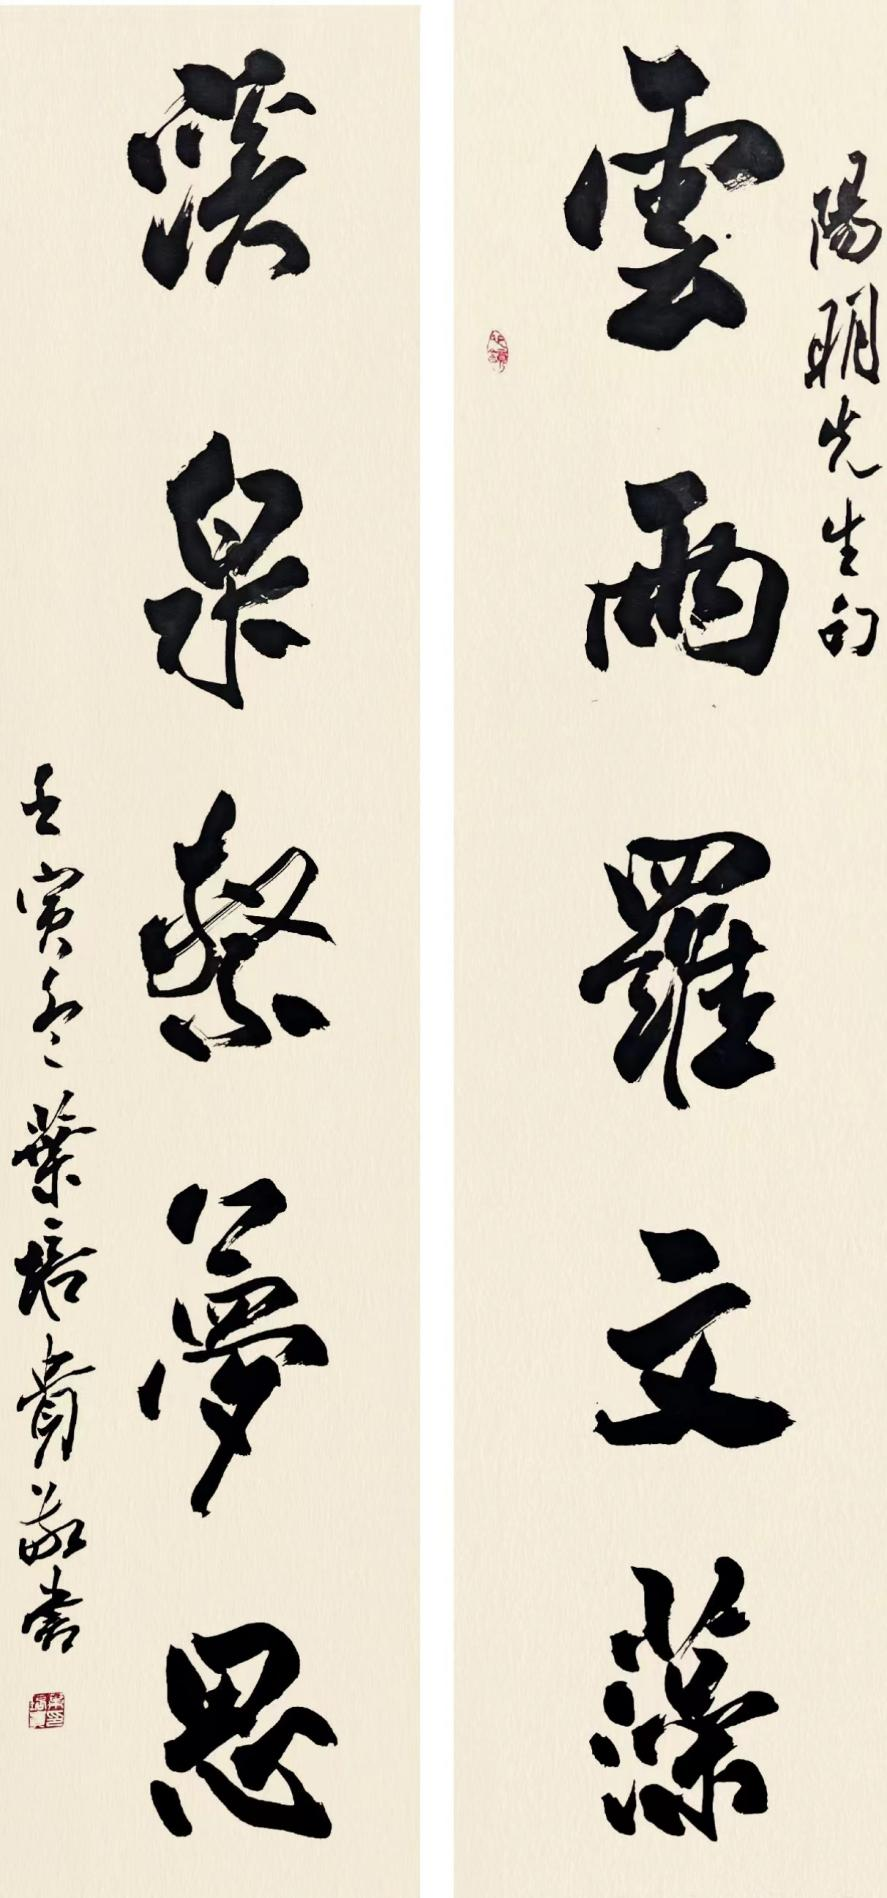 陽明先生句
雲雨羅文藻
溪泉繫夢思
壬寅冬葉培貴敬書